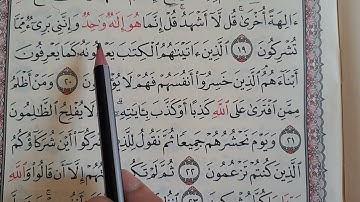 ءَالِهَةً أُخْرَىٰ قُل لَّآ أَشْهَدُ قُلْ إِنَّمَا هُوَ إِلَٰهٌ وَٰحِدٌ وَإِنَّنِى بَرِىٓءٌ مِّمَّا
تُشْرِكُونَ ١٩ ٱلَّذِينَ ءَاتَيْنَٰهُمُ ٱلْكِتَٰبَ كَمَا يَعْرِفُونَ
أَبْنَآءَهُمُ ٱلَّذِينَ خَسِرُوٓا۟ أَنفُسَهُمْ فَهُمْ لَا ٢٠ وَمَنْ أَظْلَمُ
مِمَّنِ ٱفْتَرَىٰ عَلَى ٱللَّهِ كَذِبًا أَوْ كَذَّبَ بِـَٔايَٰتِهِۦٓ لَا يُفْلِحُ ٱلظَّٰلِمُونَ
٢١ وَيَوْمَ نَحْشُرُهُمْ جَمِيعًا ثُمَّ نَقُولُ أَيْنَ شُرَكَآؤُكُمُ
ٱلَّذِينَ كُنتُمْ تَزْعُمُونَ ٢٢ ثُمَّ لَمْ تَكُن إِلَّآ أَن قَالُوا۟ وَٱللَّهِ